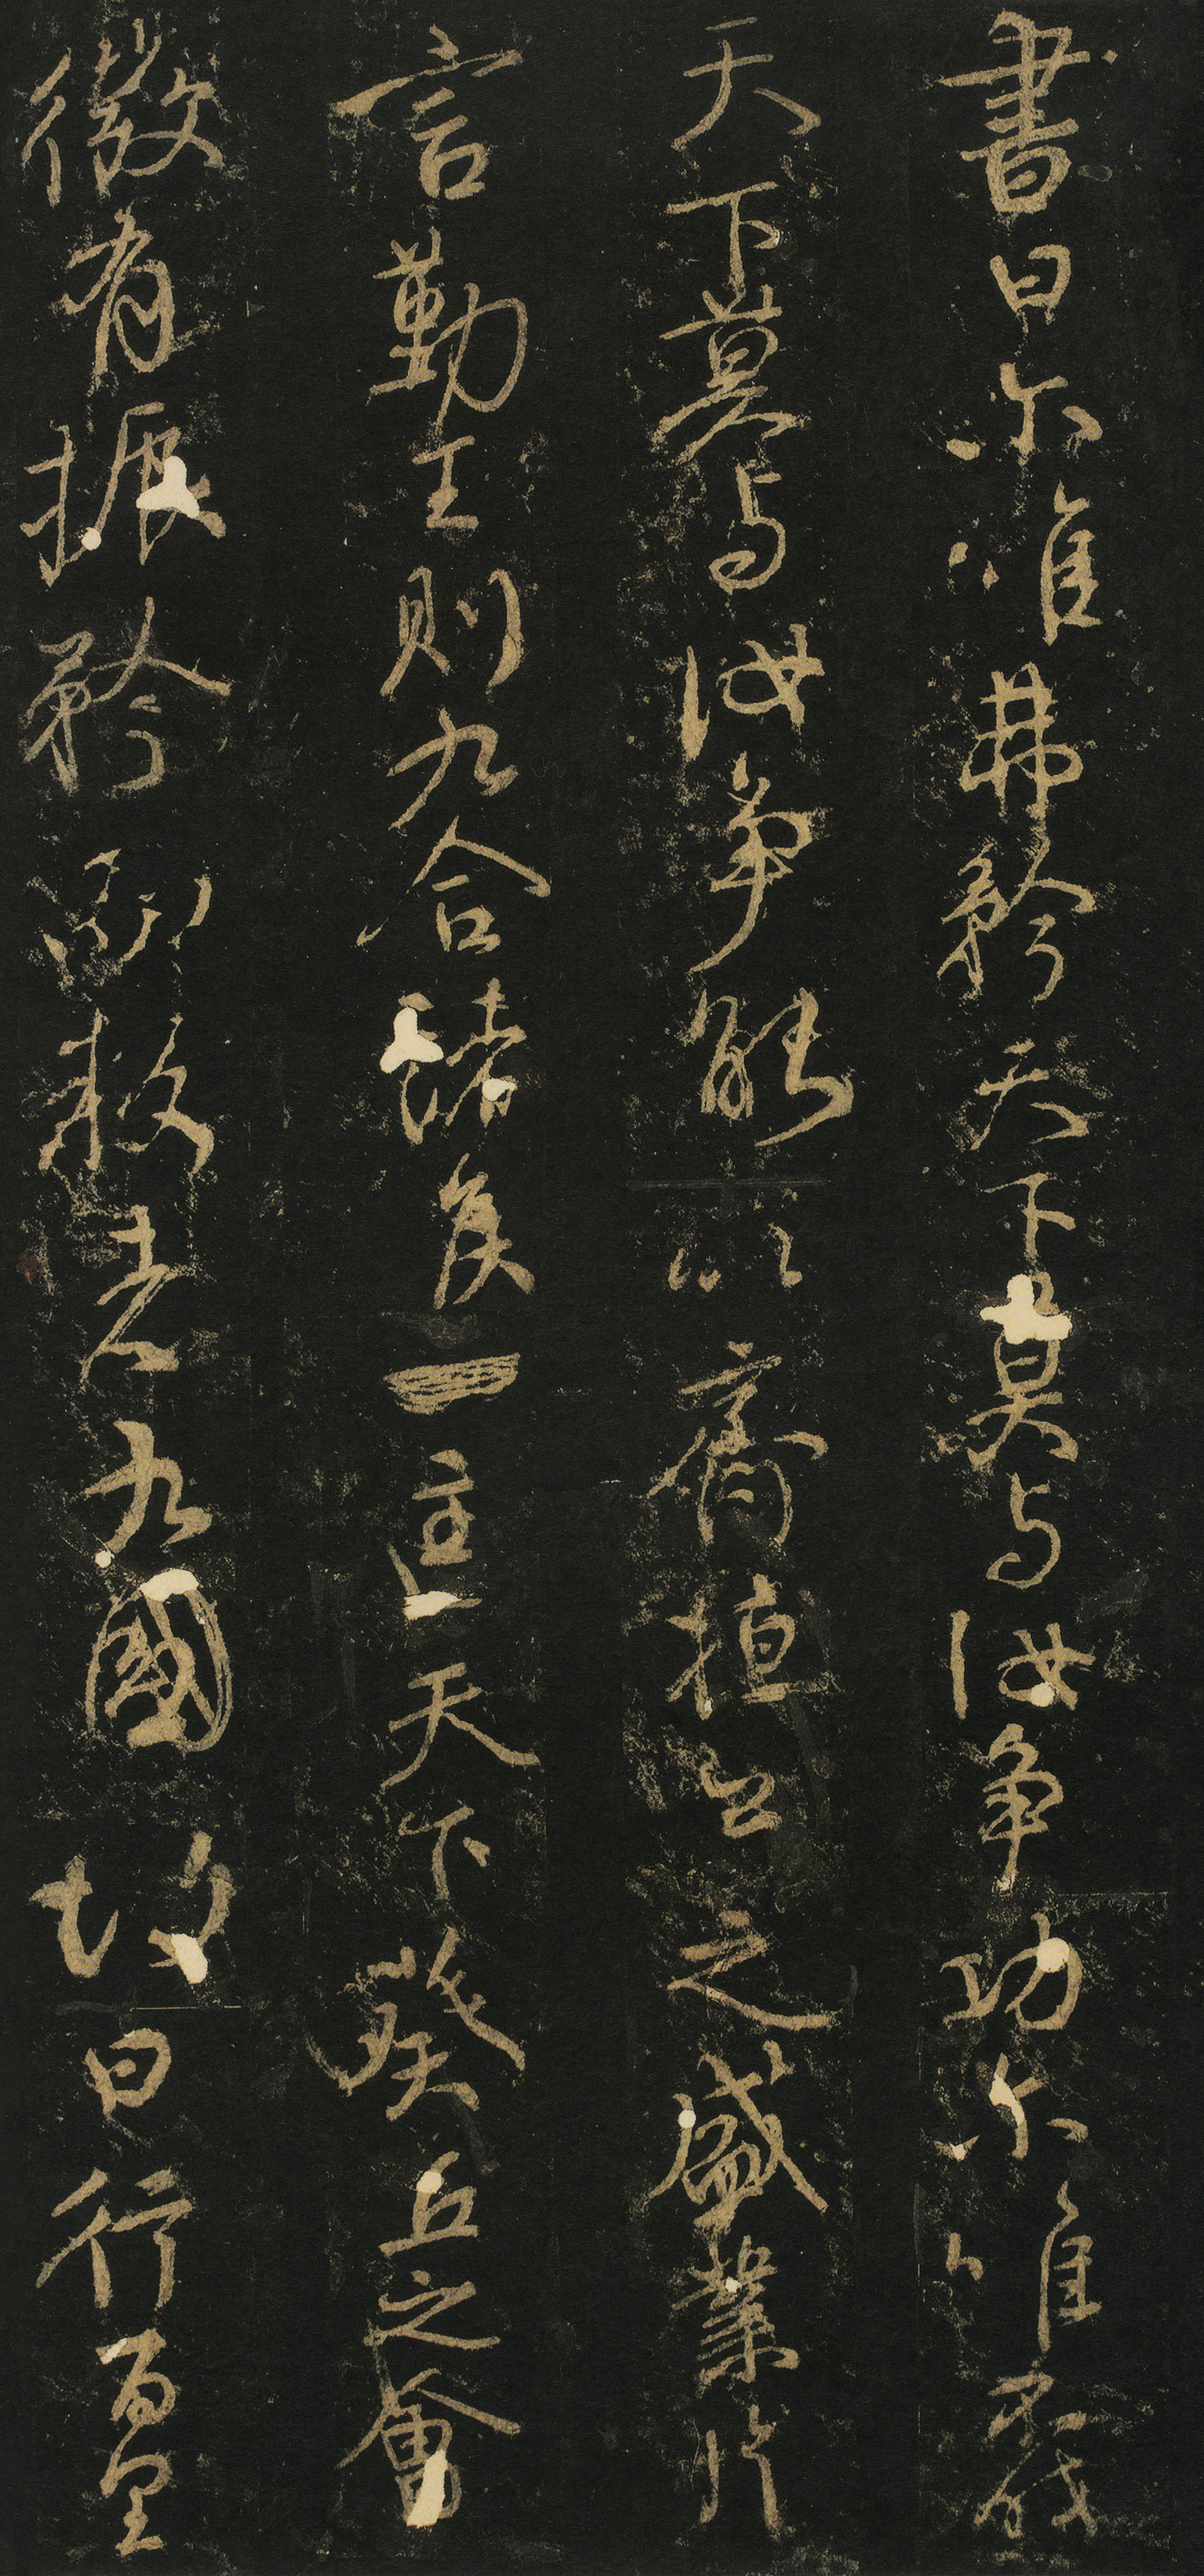 書曰尓唯弗矜天下莫与汝争功尓唯不伐
天下莫与汝争能以齊桓公之盛業片
言勤王則九合諸侯一匡天下葵丘之會
微有振矜而叛者九國故曰行百里